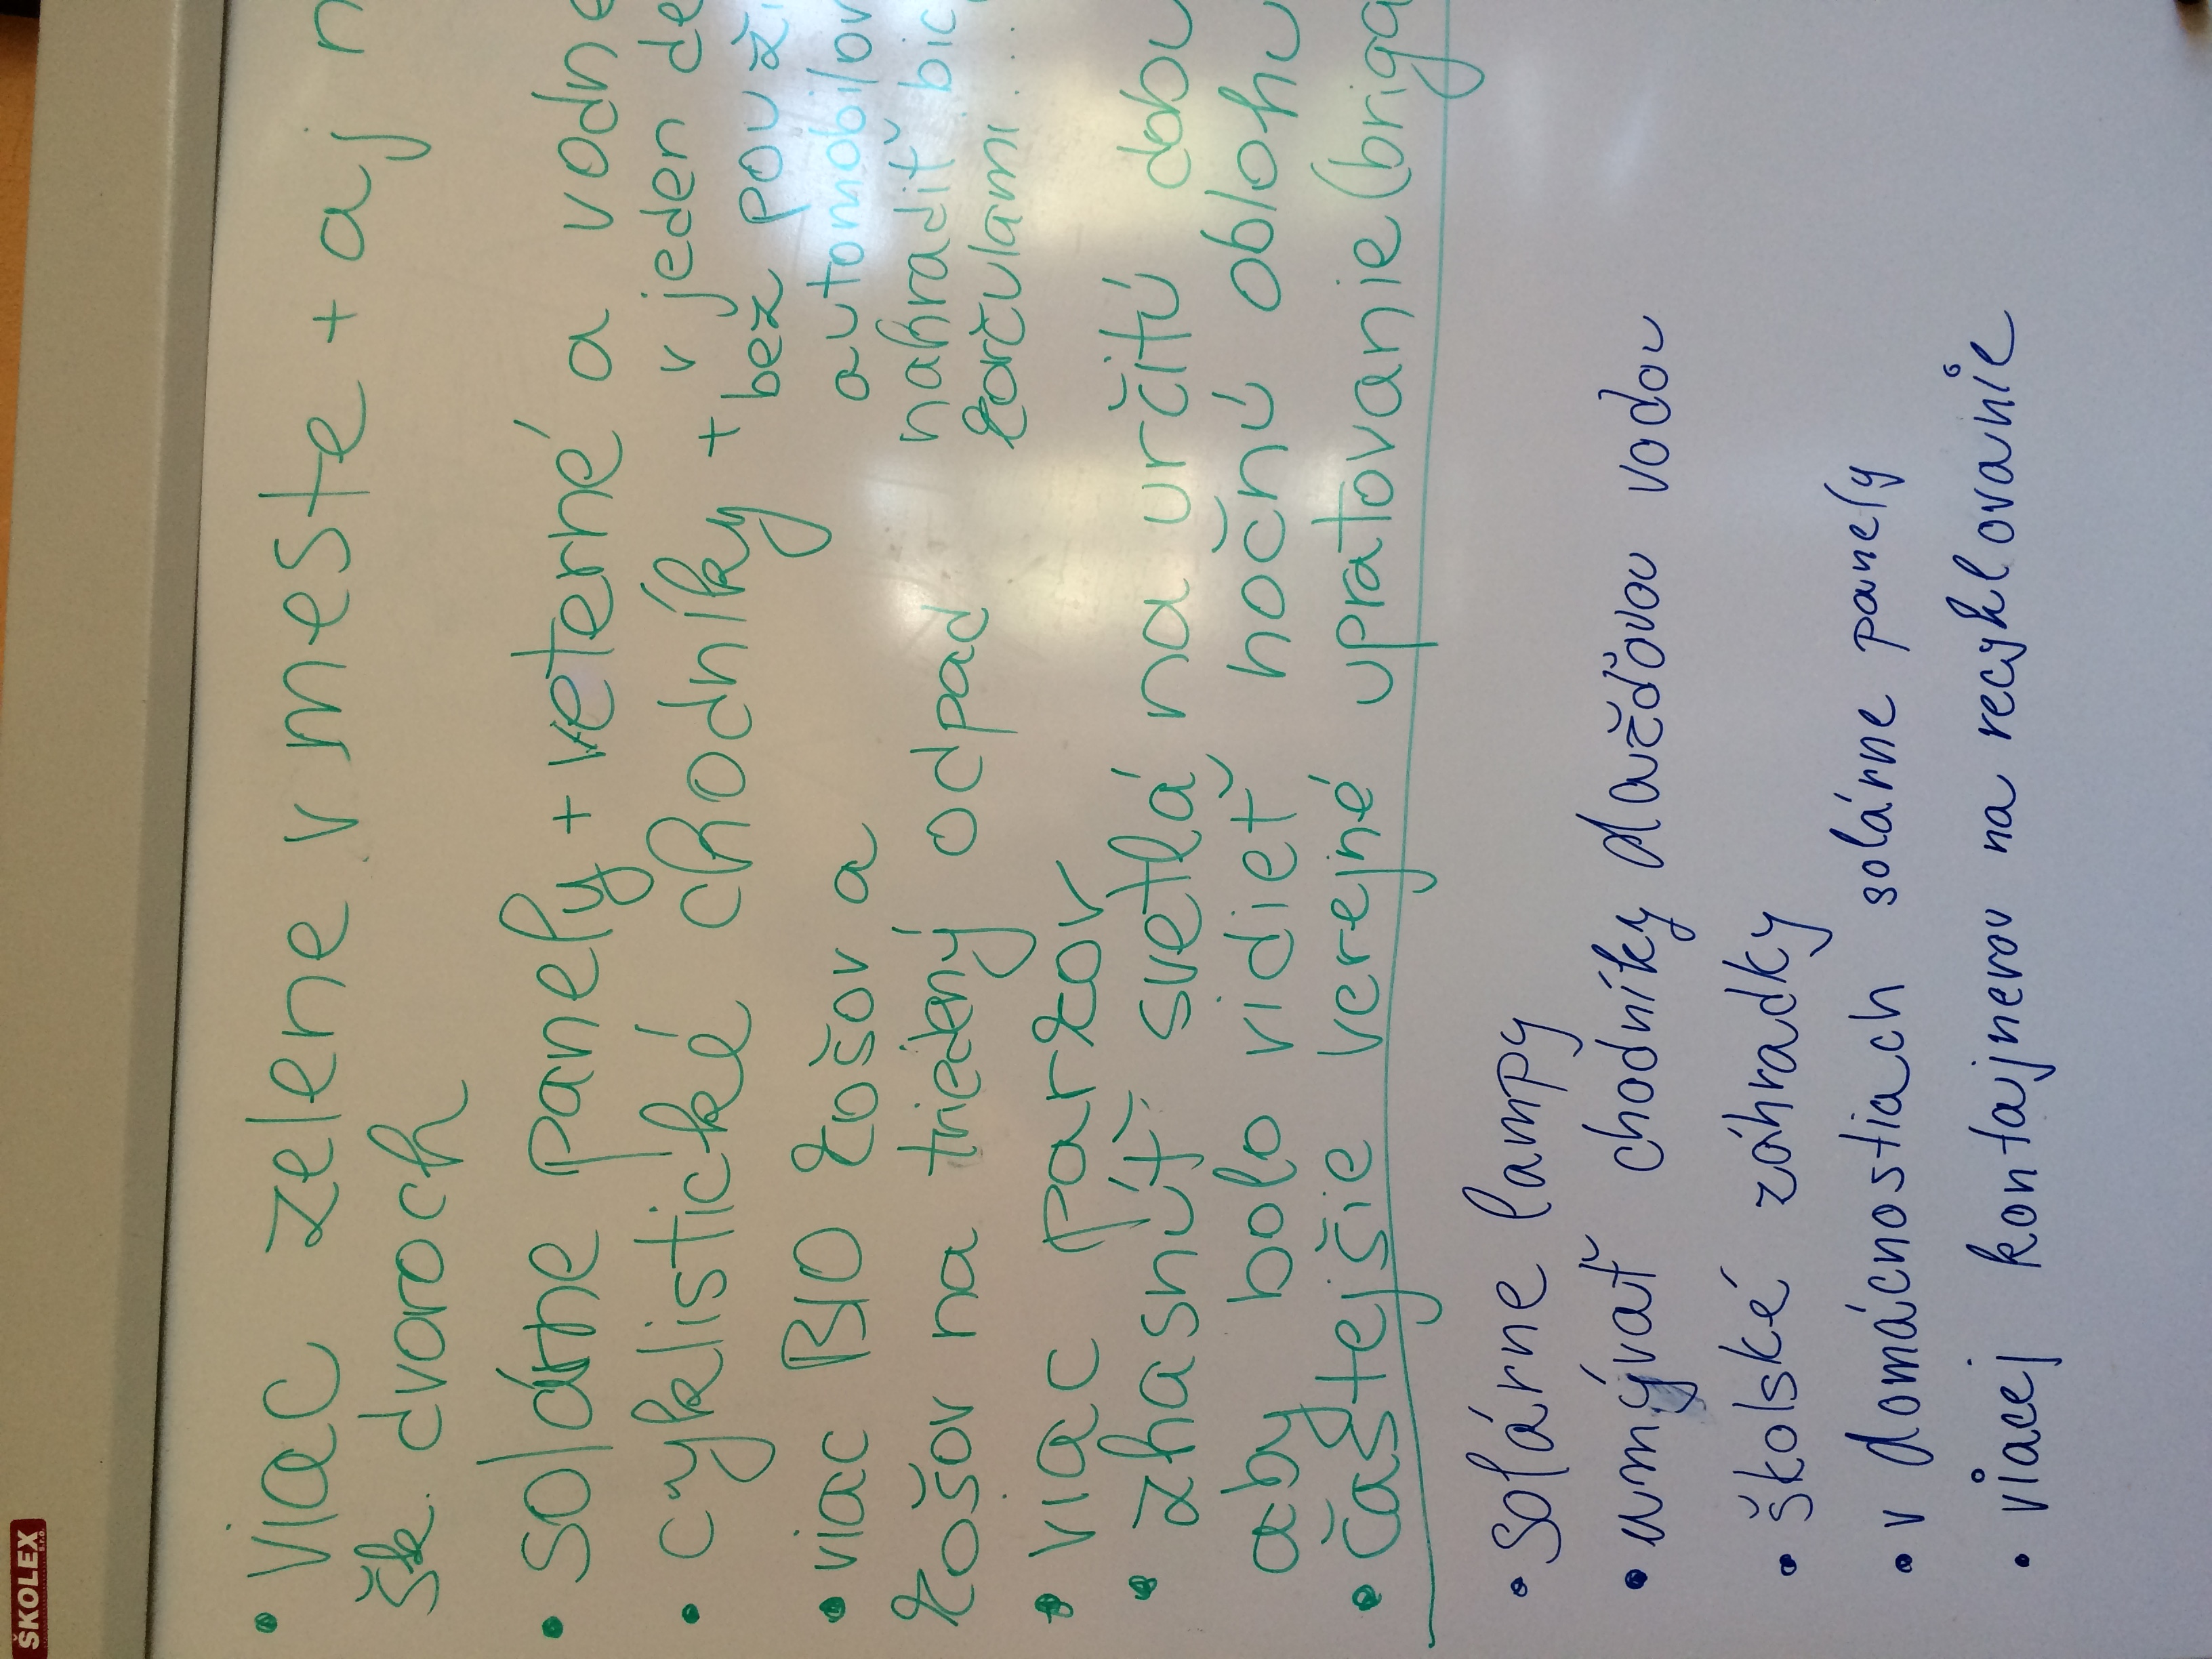 ŠKOLEX
s.r.o.
• viac zelene v meste + aj n
šk. dvoroch
• solárne panely + veterné a vodne
• cyklistické chodníky + v jeden de
bez použi
automobilov
nahradiť bic
korčulami...
• viac BIO košov a
košov na triedený odpad
• viac parkov
• zhasnúť svetlá na určitú dobu
aby bolo vidieť nočnú oblohu
• častejšie verejné upratovanie (briga
• solárne lampy
• umývať chodníky dažďovou vodou
• školské záhradky
• v domácnostiach solárne panely
• viacej kontajnerov na recyklovanie